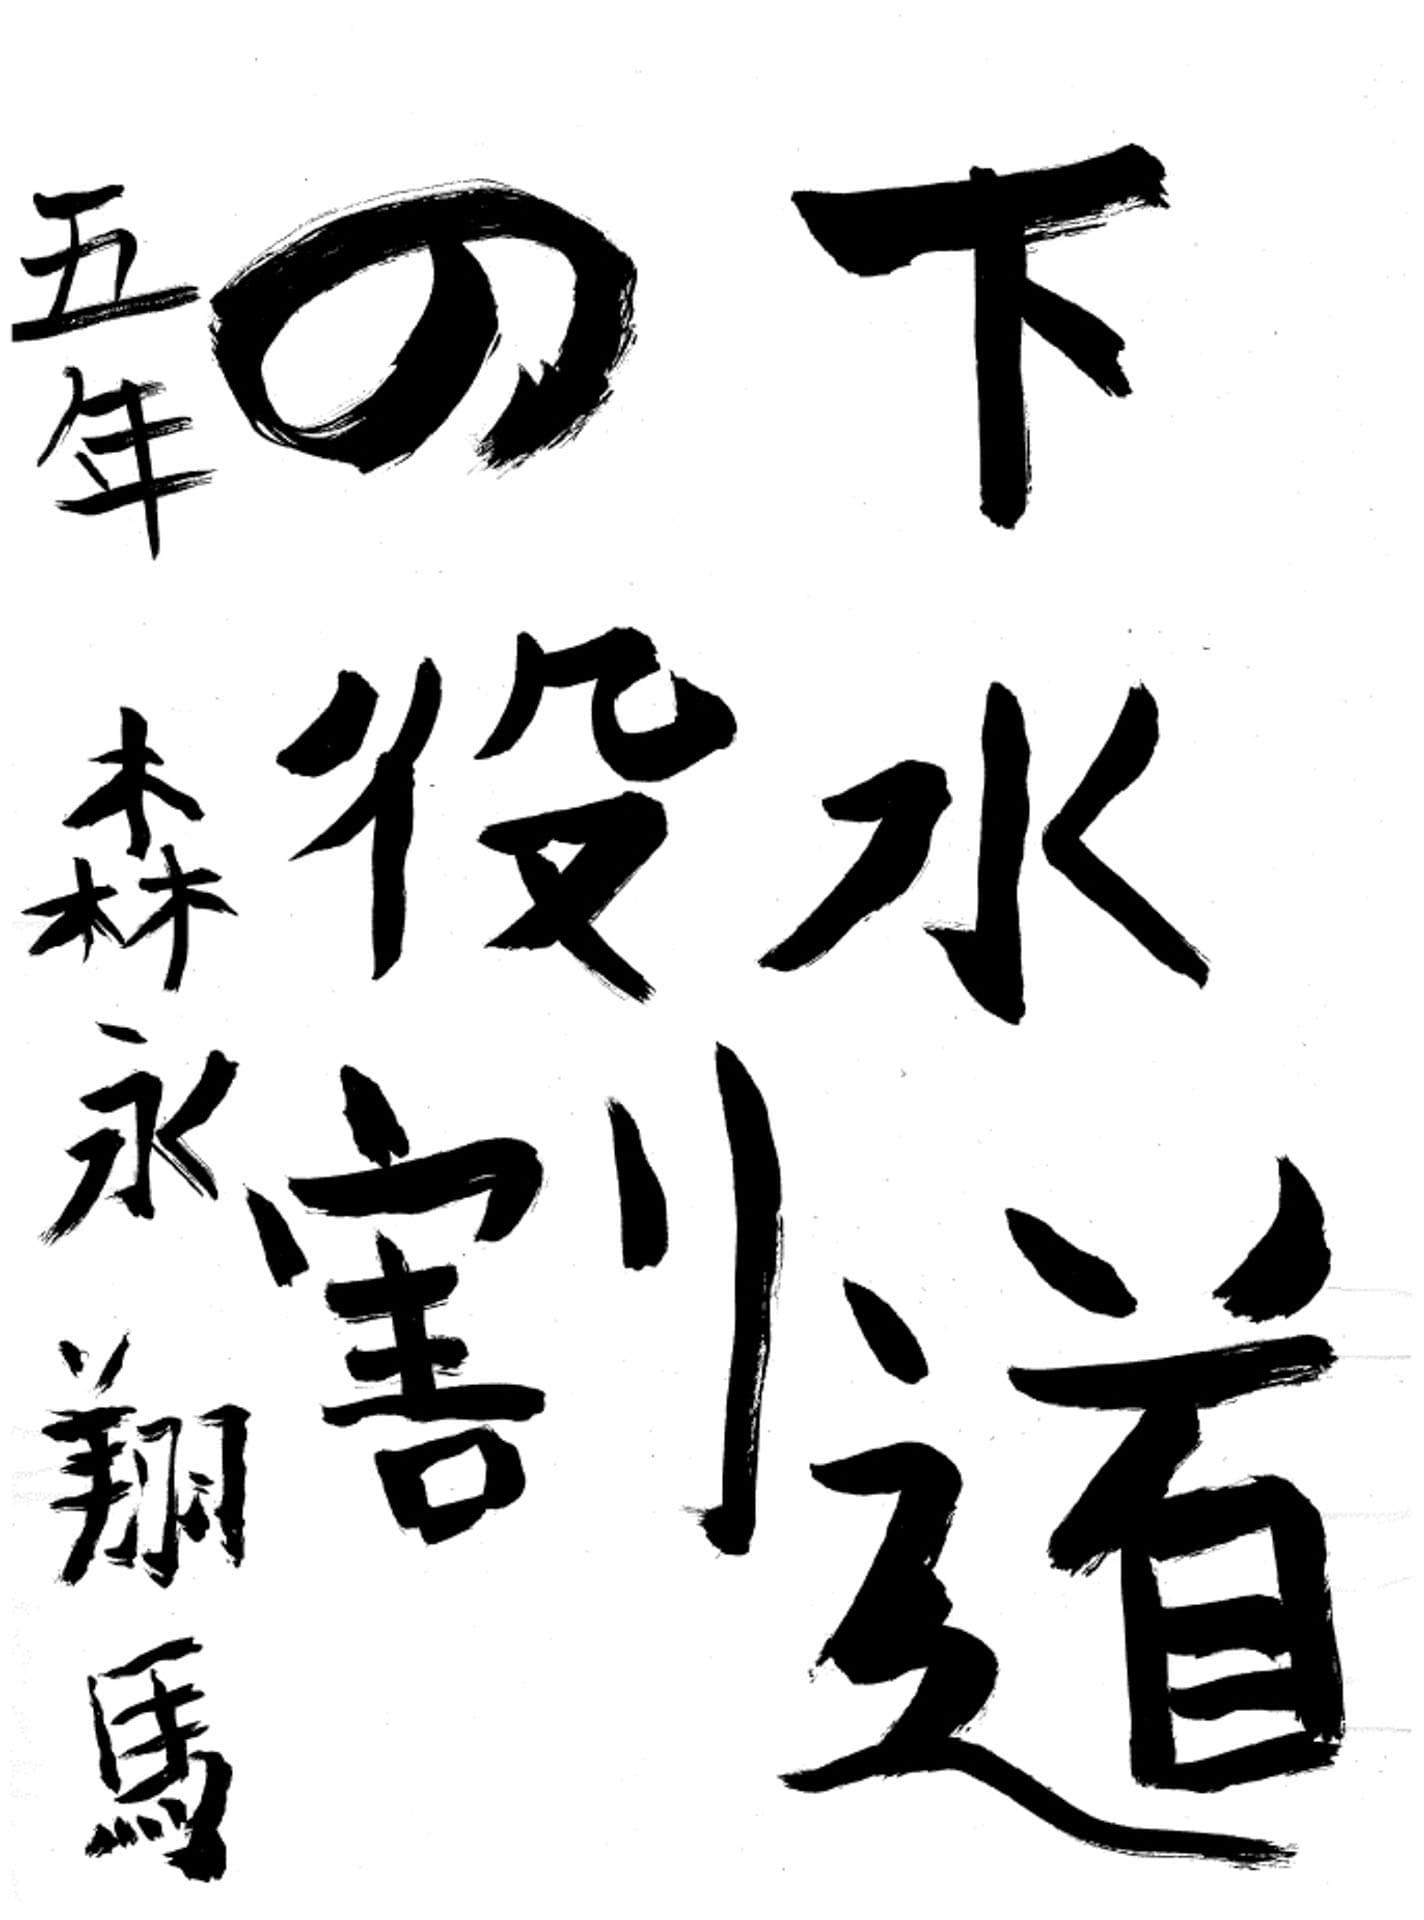 下水道
の役割
五年 森永翔馬